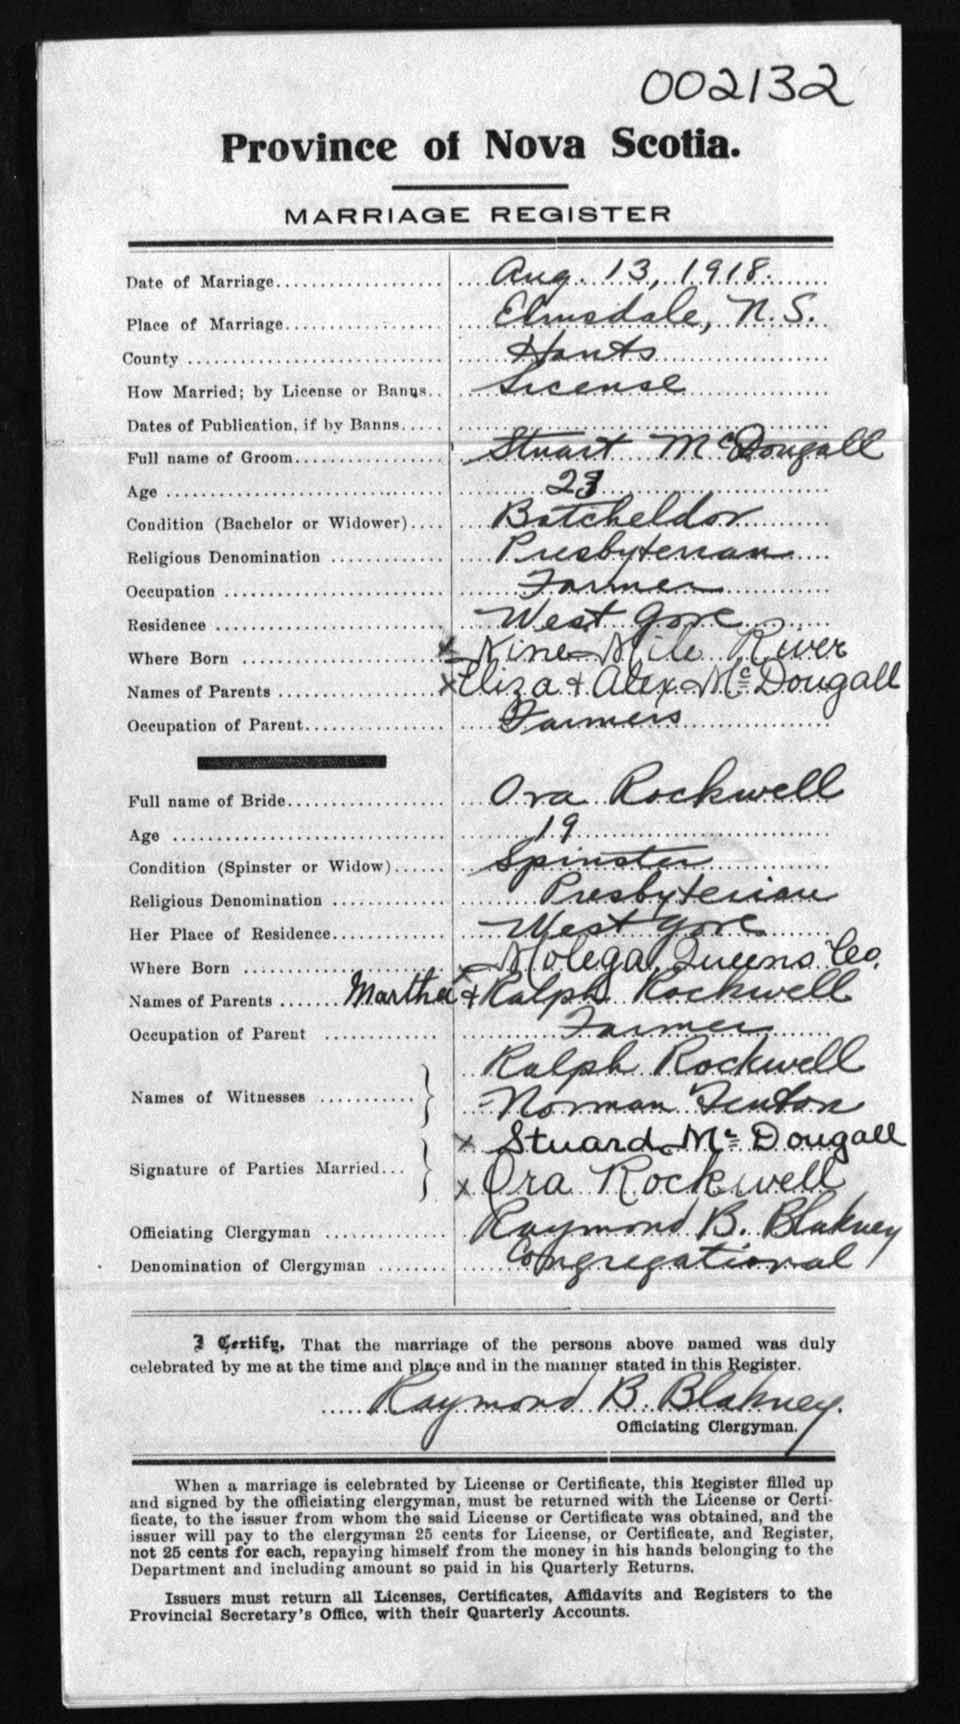 002132
Province of Nova Scotia.
MARRIAGE REGISTER
Date of Marriage Aug. 13, 1918.
Place of Marriage Elmsdale, N.S.
County Hants
How Married; by License or Banns License
Dates of Publication, if by Banns
Full name of Groom Stuart McDougall
Age 23
Condition (Bachelor or Widower) Batcheldor
Religious Denomination Presbyterian
Occupation Farmer
Residence West Gore
Where Born x Nine Mile River
Names of Parents x Eliza & Alex McDougall
Occupation of Parent Farmers
Full name of Bride Ora Rockwell
Age 19
Condition (Spinster or Widow) Spinster
Religious Denomination Presbyterian
Her Place of Residence West Gore
Where Born x Molega, Queens Co.
Names of Parents Martha & Ralph Rockwell
Occupation of Parent Farmer
Ralph Rockwell
Names of Witnesses Norman Fenton
x Stuard McDougall
Signature of Parties Married x Ora Rockwell
Officiating Clergyman Raymond B. Blakney
Denomination of Clergyman Congregational
I Certify, That the marriage of the persons above named was duly
celebrated by me at the time and place and in the manner stated in this Register.
Raymond B. Blakney.
Officiating Clergyman.
When a marriage is celebrated by License or Certificate, this Register filled up
and signed by the officiating clergyman, must be returned with the License or Certi-
ficate, to the issuer from whom the said License or Certificate was obtained, and the
issuer will pay to the clergyman 25 cents for License, or Certificate, and Register,
not 25 cents for each, repaying himself from the money in his hands belonging to the
Department and including amount so paid in his Quarterly Returns.
Issuers must return all Licenses, Certificates, Affidavits and Registers to the
Provincial Secretary's Office, with their Quarterly Accounts.